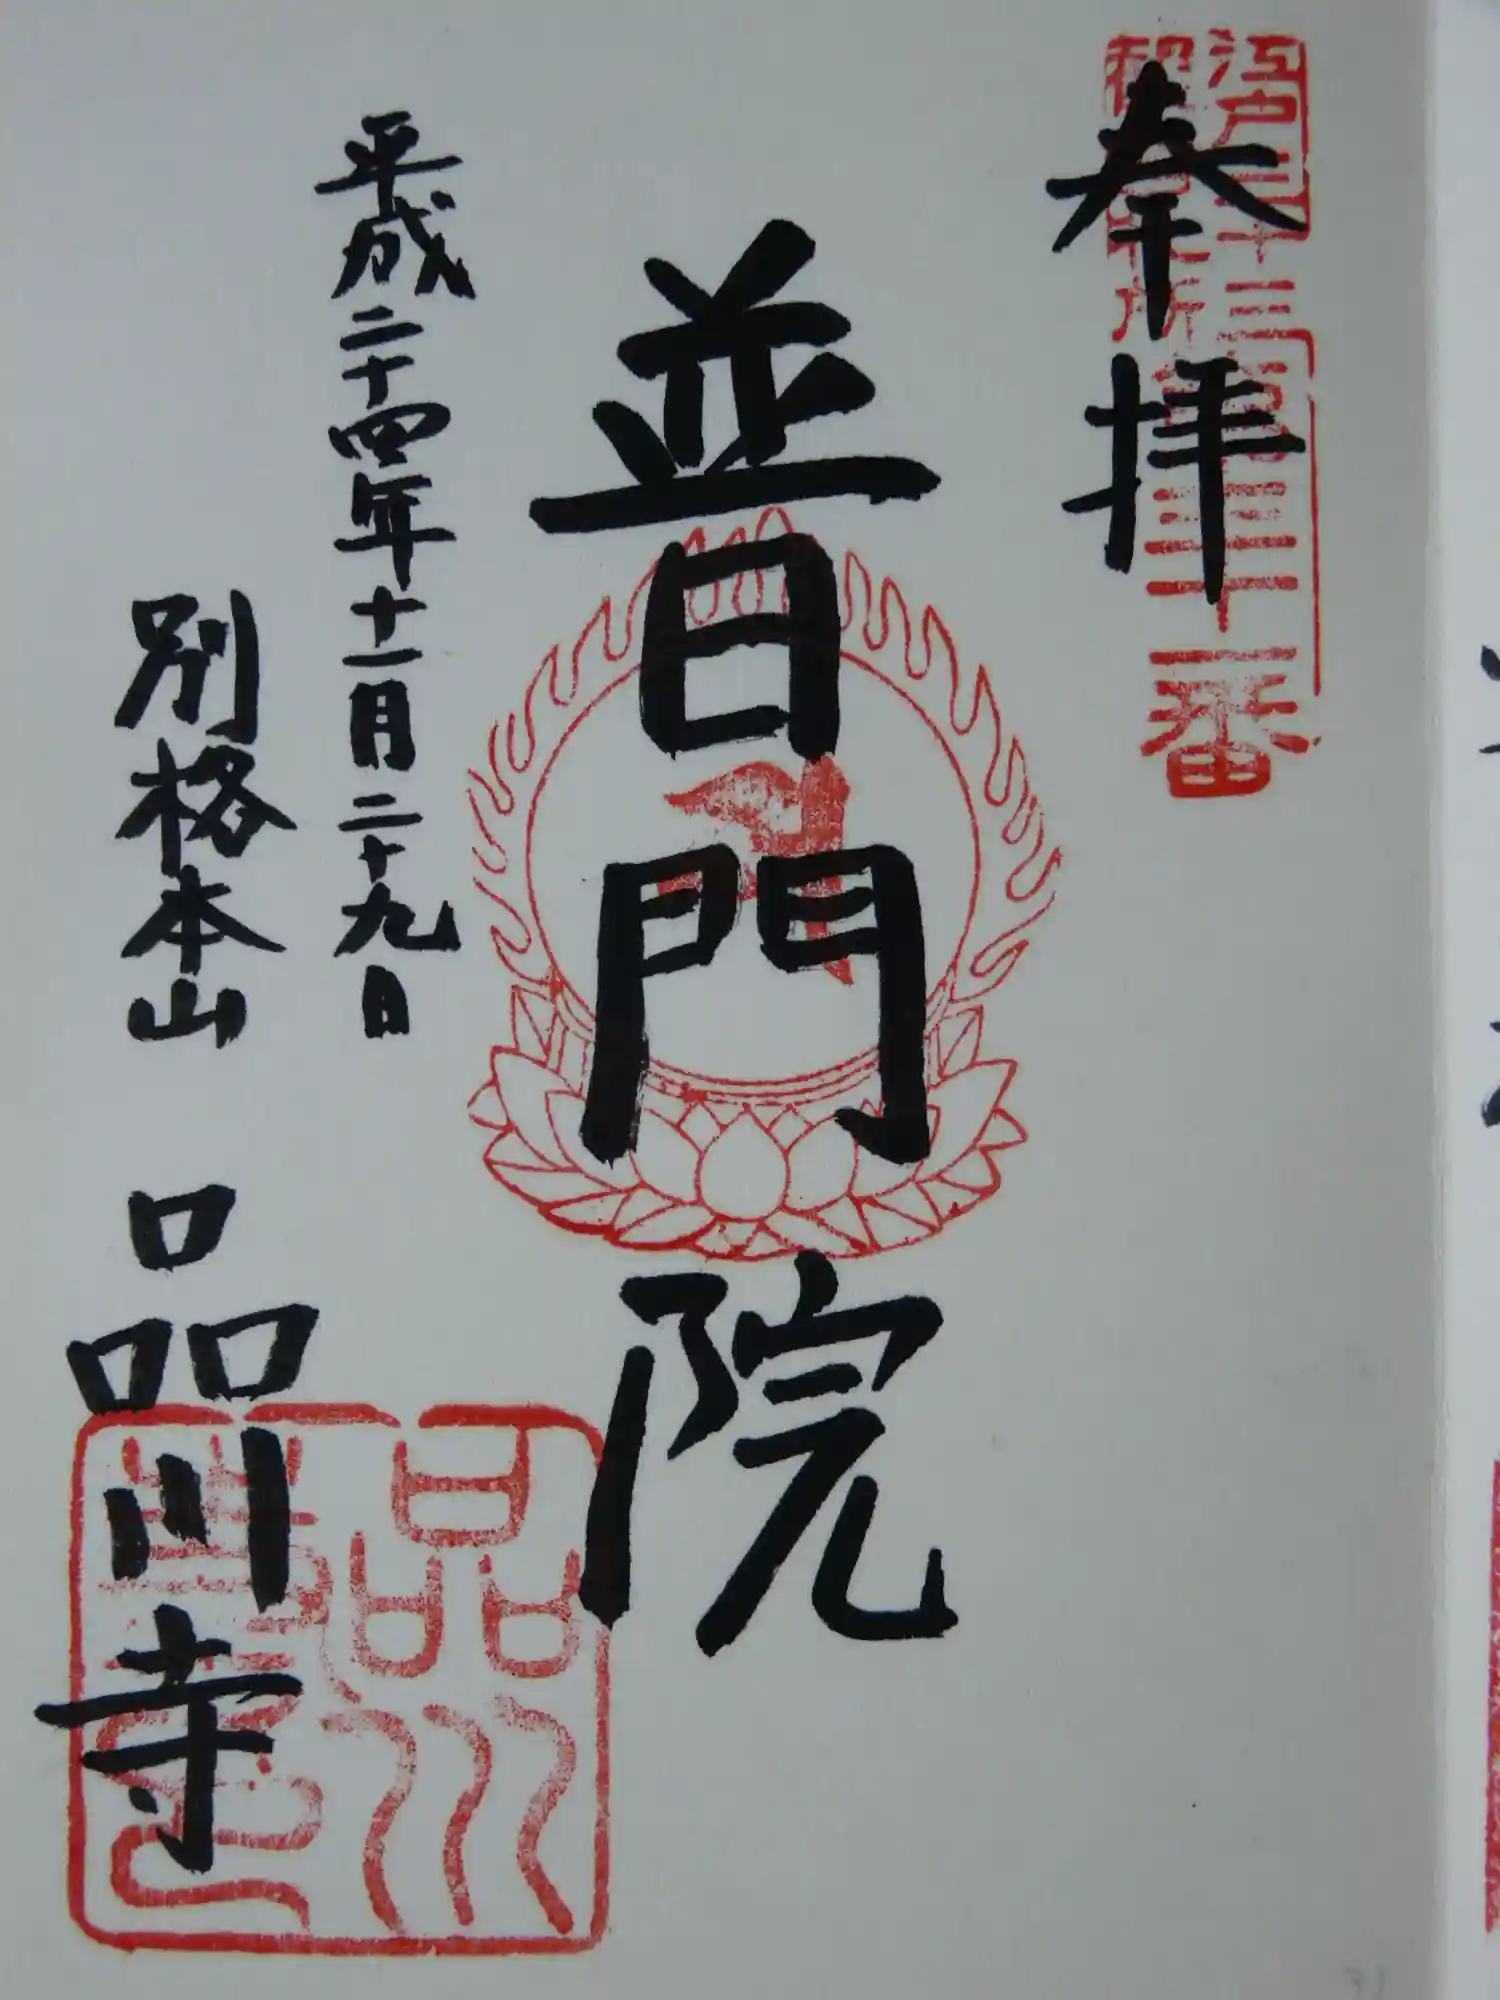 奉拝
普門院
平成二十四年十一月二十九日
別格本山 品川寺
江戸三十三観音
第三十一番
品川